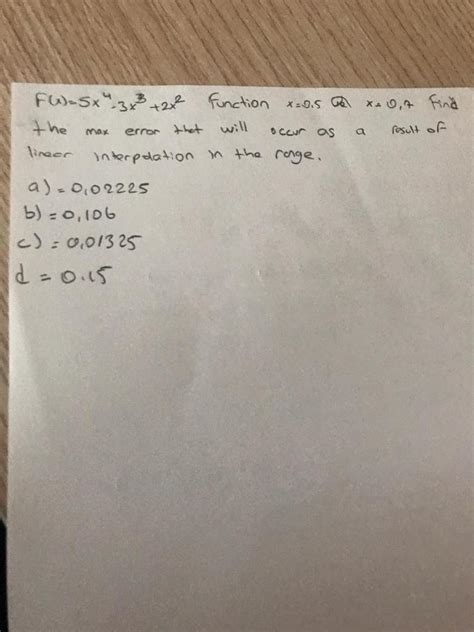 F(x)=5x⁴-3x³+2x² function x=0.5 x=0,7 find
the max error that will occur as a result of
linear interpolation in the range.
a) = 0,02225
b) = 0,106
c) = 0,01325
d = 0.15